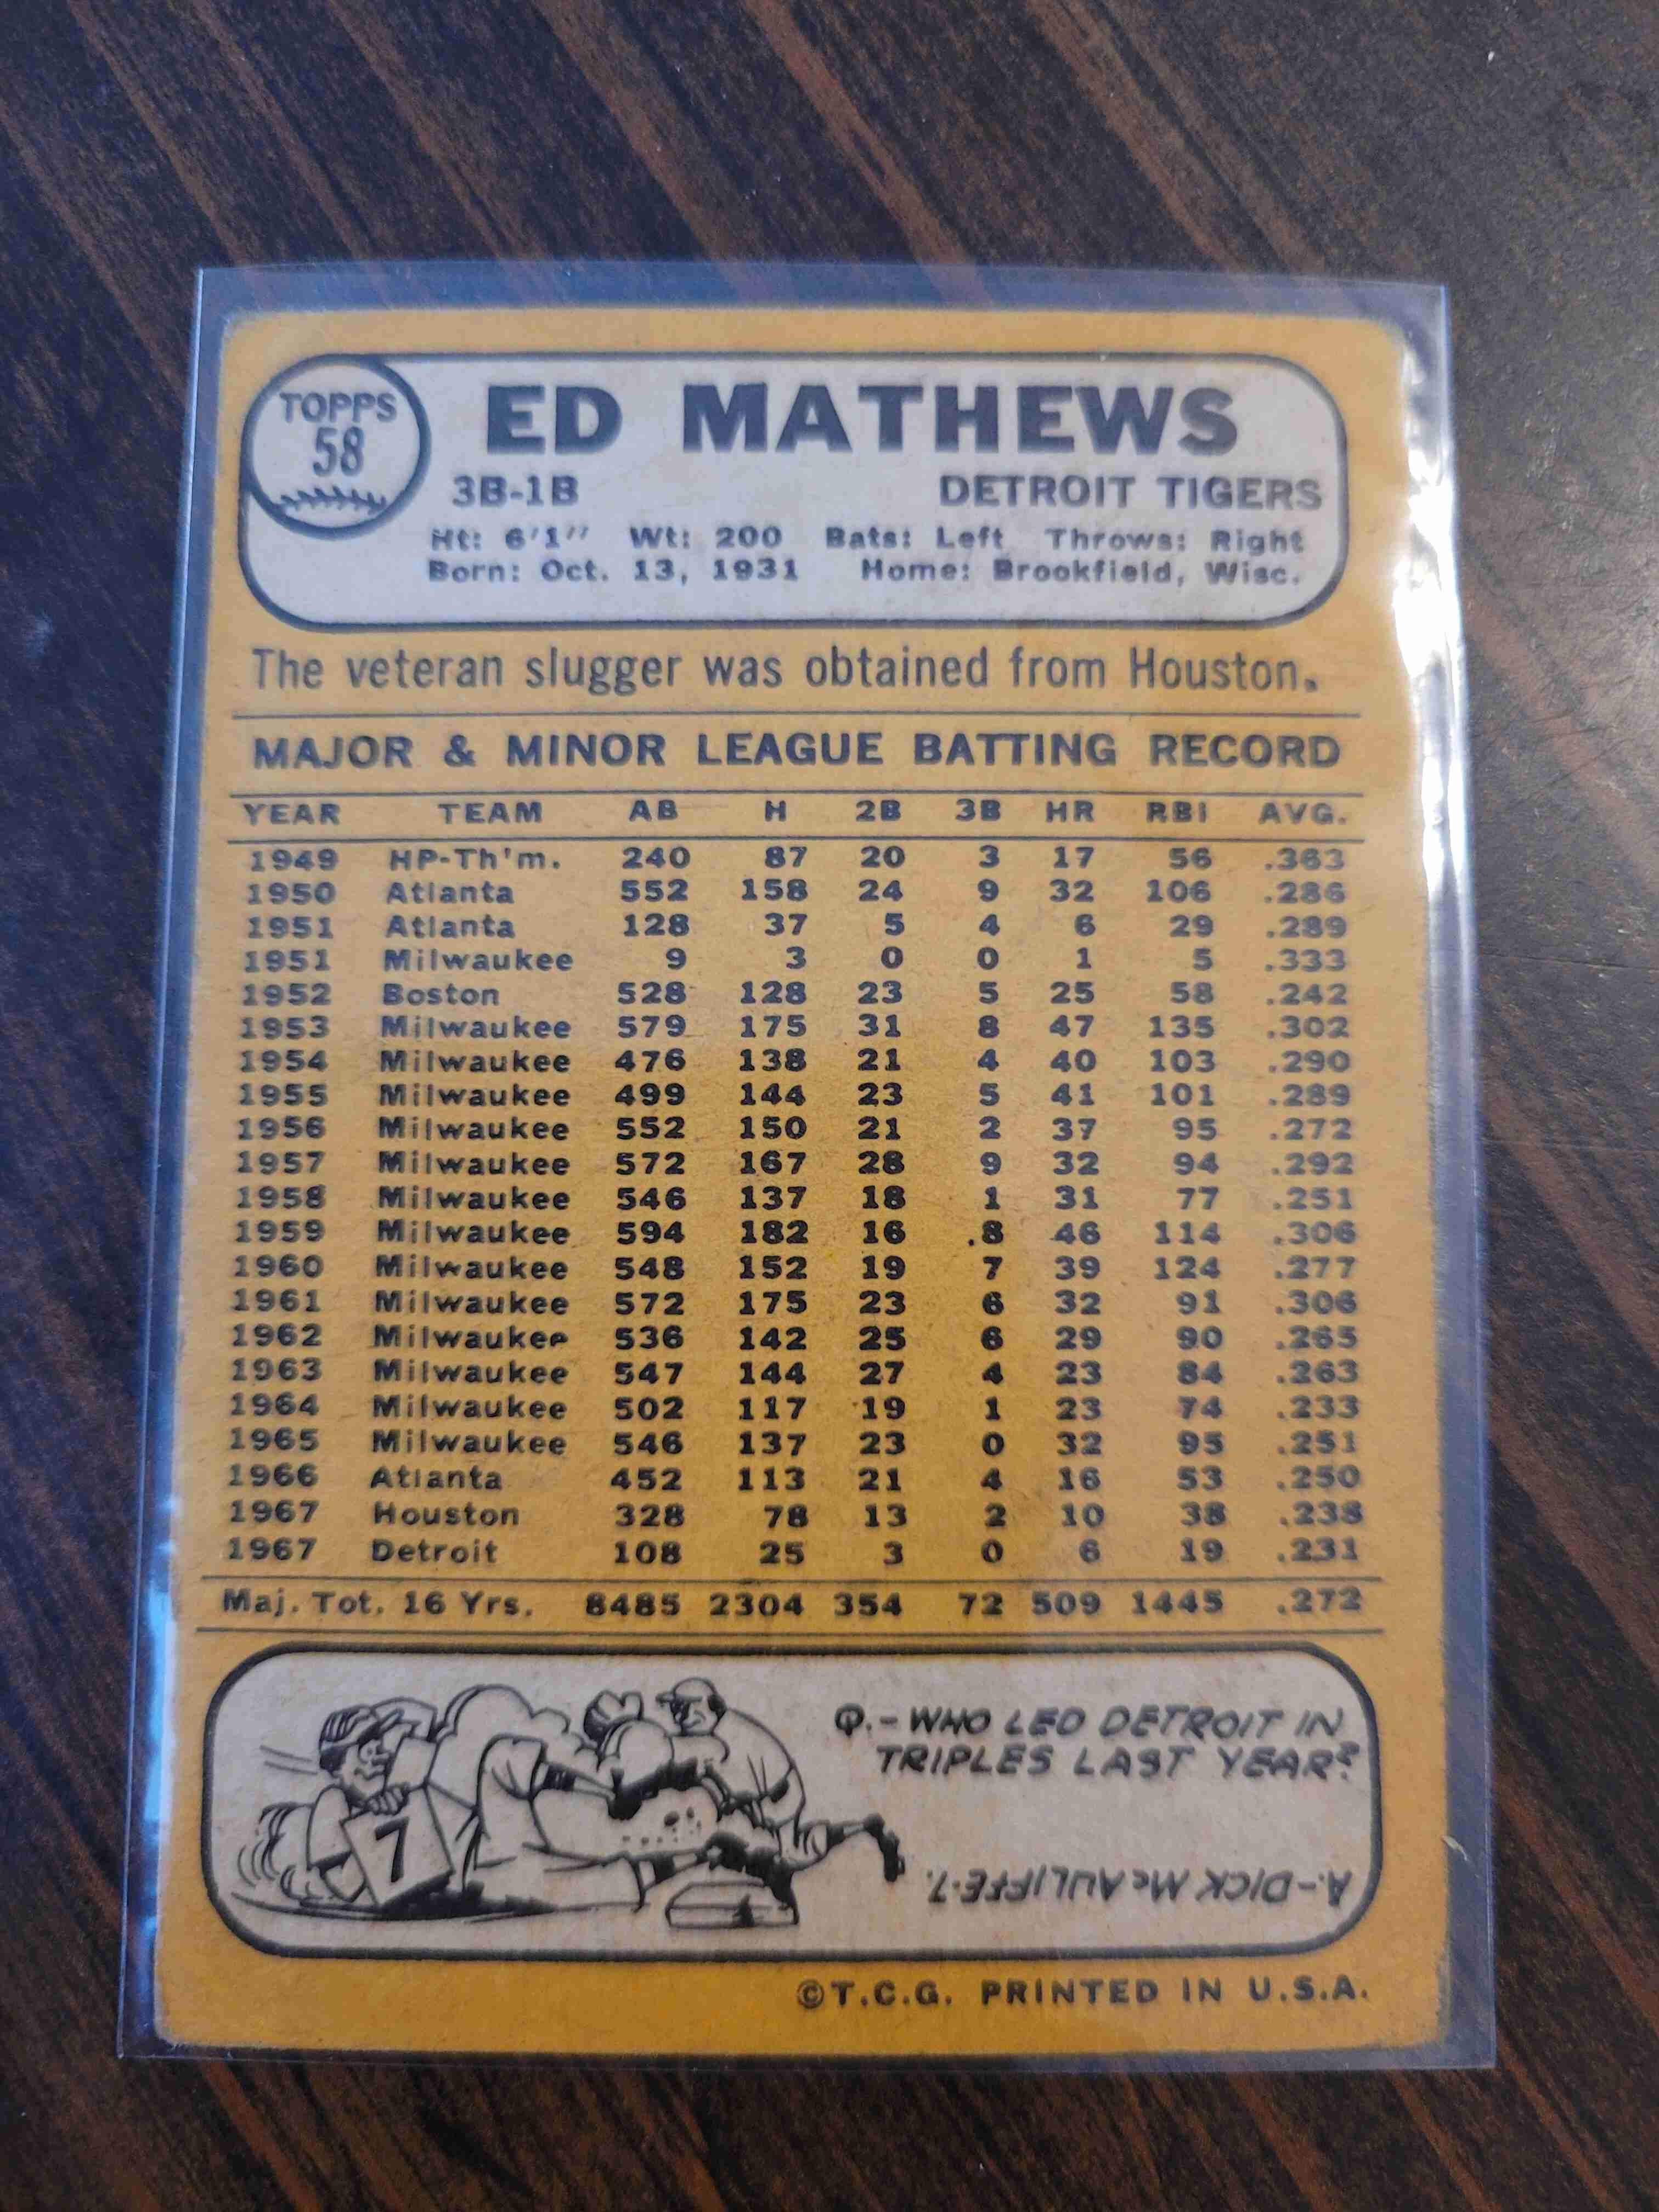 TOPPS
58
ED MATHEWS
3B-1B DETROIT TIGERS
Ht: 6'1" Wt: 200 Bats: Left Throws: Right
Born: Oct. 13, 1931 Home: Brookfield, Wisc.
The veteran slugger was obtained from Houston.
MAJOR & MINOR LEAGUE BATTING RECORD
YEAR TEAM AB H 2B 3B HR RBI AVG.
1949 HP-Th'm. 240 87 20 3 17 56 .363
1950 Atlanta 552 158 24 9 32 106 .286
1951 Atlanta 128 37 5 4 6 29 .289
1951 Milwaukee 9 3 0 0 1 5 .333
1952 Boston 528 128 23 5 25 58 .242
1953 Milwaukee 579 175 31 8 47 135 .302
1954 Milwaukee 476 138 21 4 40 103 .290
1955 Milwaukee 499 144 23 5 41 101 .289
1956 Milwaukee 552 150 21 2 37 95 .272
1957 Milwaukee 572 167 28 9 32 94 .292
1958 Milwaukee 546 137 18 1 31 77 .251
1959 Milwaukee 594 182 16 .8 46 114 .306
1960 Milwaukee 548 152 19 7 39 124 .277
1961 Milwaukee 572 175 23 6 32 91 .306
1962 Milwaukee 536 142 25 6 29 90 .265
1963 Milwaukee 547 144 27 4 23 84 .263
1964 Milwaukee 502 117 19 1 23 74 .233
1965 Milwaukee 546 137 23 0 32 95 .251
1966 Atlanta 452 113 21 4 16 53 .250
1967 Houston 328 78 13 2 10 38 .238
1967 Detroit 108 25 3 0 6 19 .231
Maj. Tot. 16 Yrs. 8485 2304 354 72 509 1445 .272
7
Q.-WHO LED DETROIT IN
TRIPLES LAST YEAR?
A.-DICK McAULIFFE-7.
©T.C.G. PRINTED IN U.S.A.